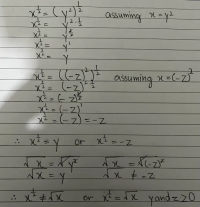 x^½ = (y²)^½ assuming x=y²
x^½ = y^(2·½)
x^½ = y^(2/2)
x^½ = y¹
x^½ = y
x^½ = ((-z)²)^½ assuming x=(-z)²
x^½ = (-z)^(2·½)
x^½ = (-z)^(2/2)
x^½ = (-z)¹
x^½ = (-z) = -z
∴ x^½ = y or x^½ = -z
√x = √y² √x = √(-z)²
√x = y √x ≠ -z
∴ x^½ ≠ √x or x^½ = √x